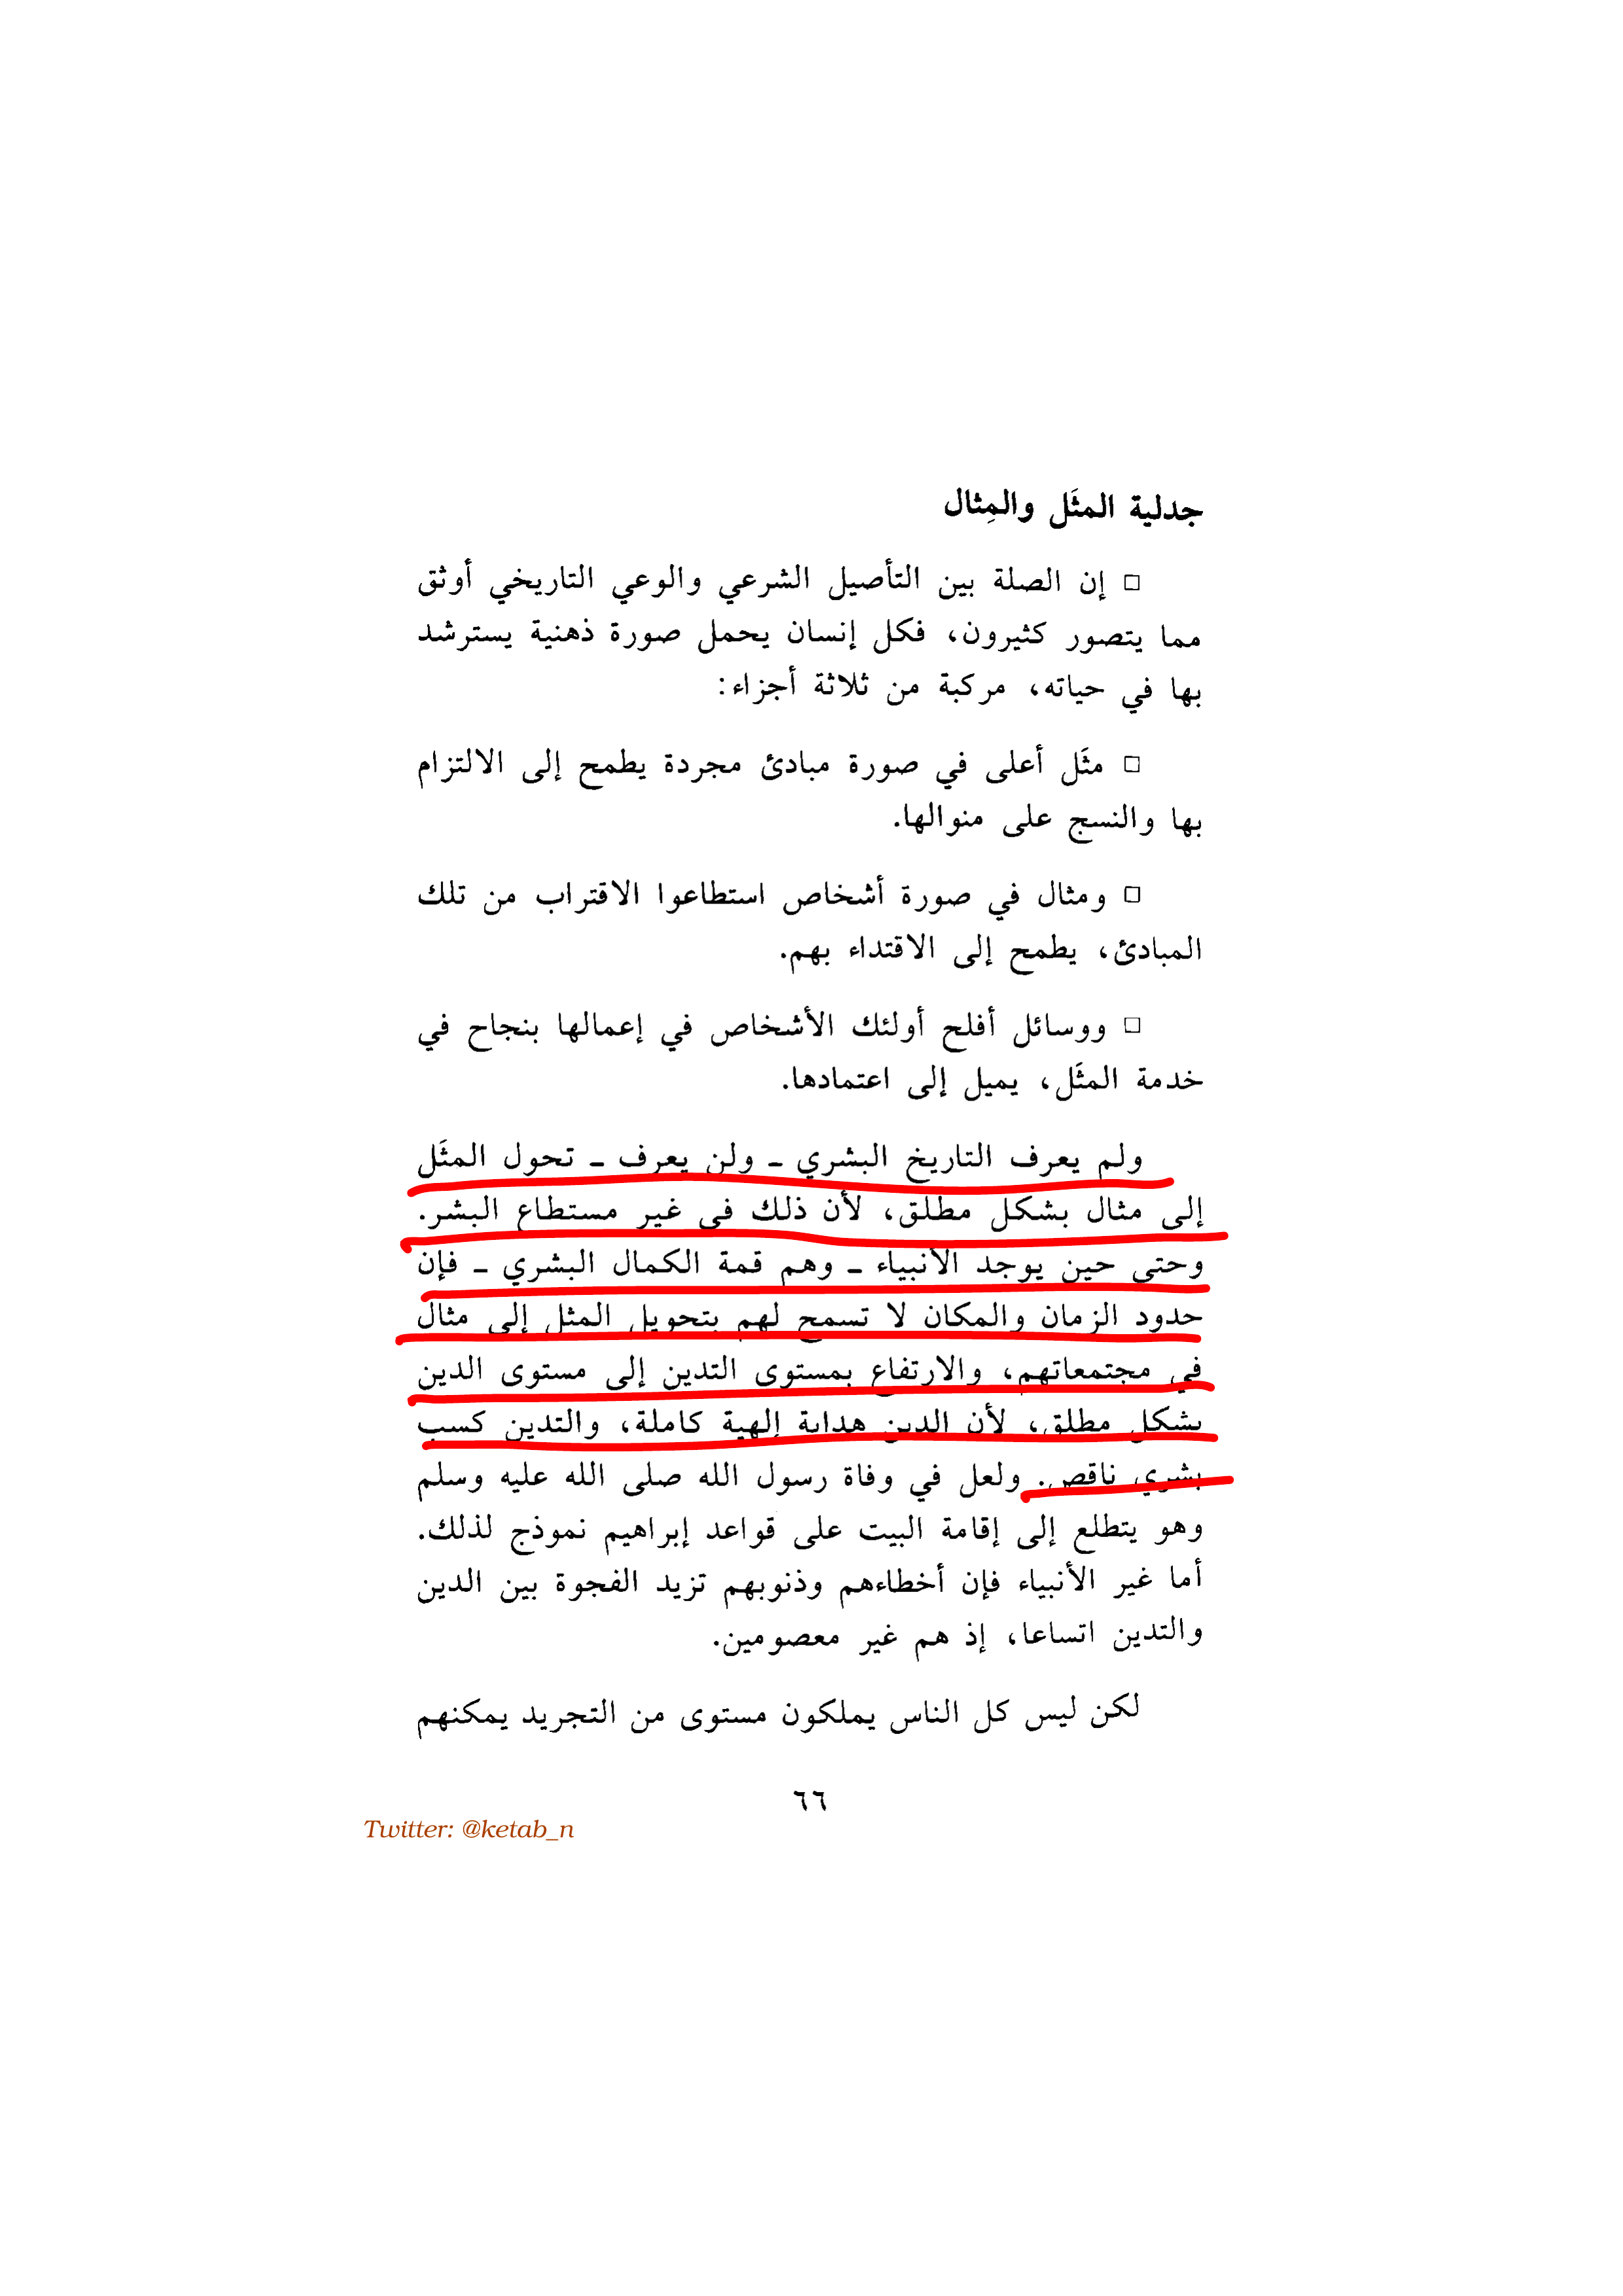 جدلية المثَل والمِثال
□ إن الصلة بين التأصيل الشرعي والوعي التاريخي أوثق
مما يتصور كثيرون، فكل إنسان يحمل صورة ذهنية يسترشد
بها في حياته، مركبة من ثلاثة أجزاء:
□ مثَل أعلى في صورة مبادئ مجردة يطمح إلى الالتزام
بها والنسج على منوالها.
□ ومثال في صورة أشخاص استطاعوا الاقتراب من تلك
المبادئ، يطمح إلى الاقتداء بهم.
□ ووسائل أفلح أولئك الأشخاص في إعمالها بنجاح في
خدمة المثَل، يميل إلى اعتمادها.
ولم يعرف التاريخ البشري ـ ولن يعرف ـ تحول المثَل
إلى مثال بشكل مطلق، لأن ذلك في غير مستطاع البشر.
وحتى حين يوجد الأنبياء ـ وهم قمة الكمال البشري ـ فإن
حدود الزمان والمكان لا تسمح لهم بتحويل المثل إلى مثال
في مجتمعاتهم، والارتفاع بمستوى التدين إلى مستوى الدين
بشكل مطلق، لأن الدين هداية إلهية كاملة، والتدين كسب
بشري ناقص. ولعل في وفاة رسول الله صلى الله عليه وسلم
وهو يتطلع إلى إقامة البيت على قواعد إبراهيم نموذج لذلك.
أما غير الأنبياء فإن أخطاءهم وذنوبهم تزيد الفجوة بين الدين
والتدين اتساعا، إذ هم غير معصومين.
لكن ليس كل الناس يملكون مستوى من التجريد يمكنهم
٦٦
Twitter: @ketab_n